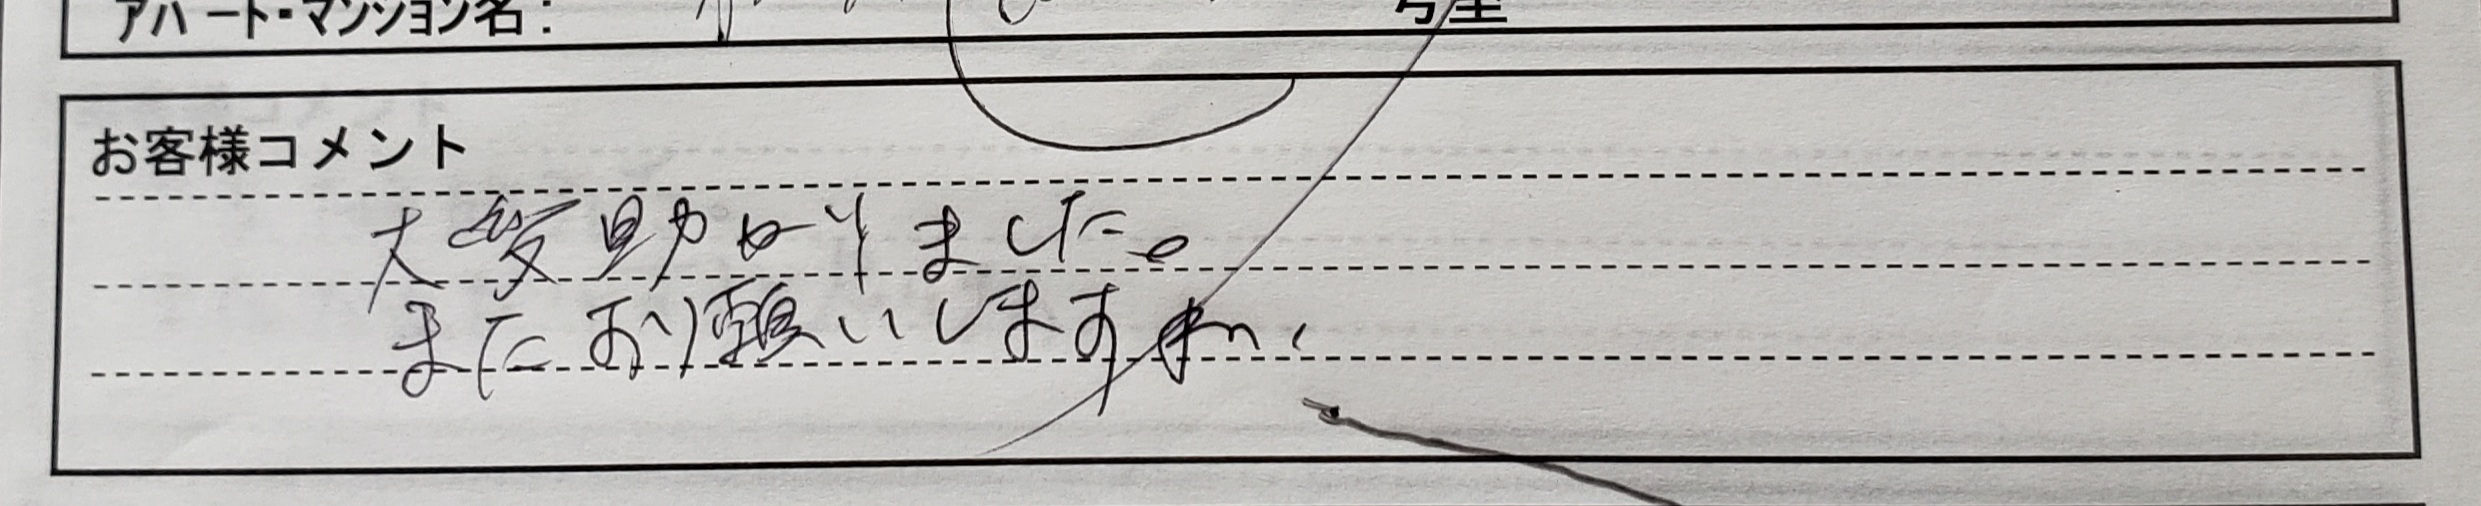 アパート・マンション名： 号室
お客様コメント
大変助かりました。
またお願いします